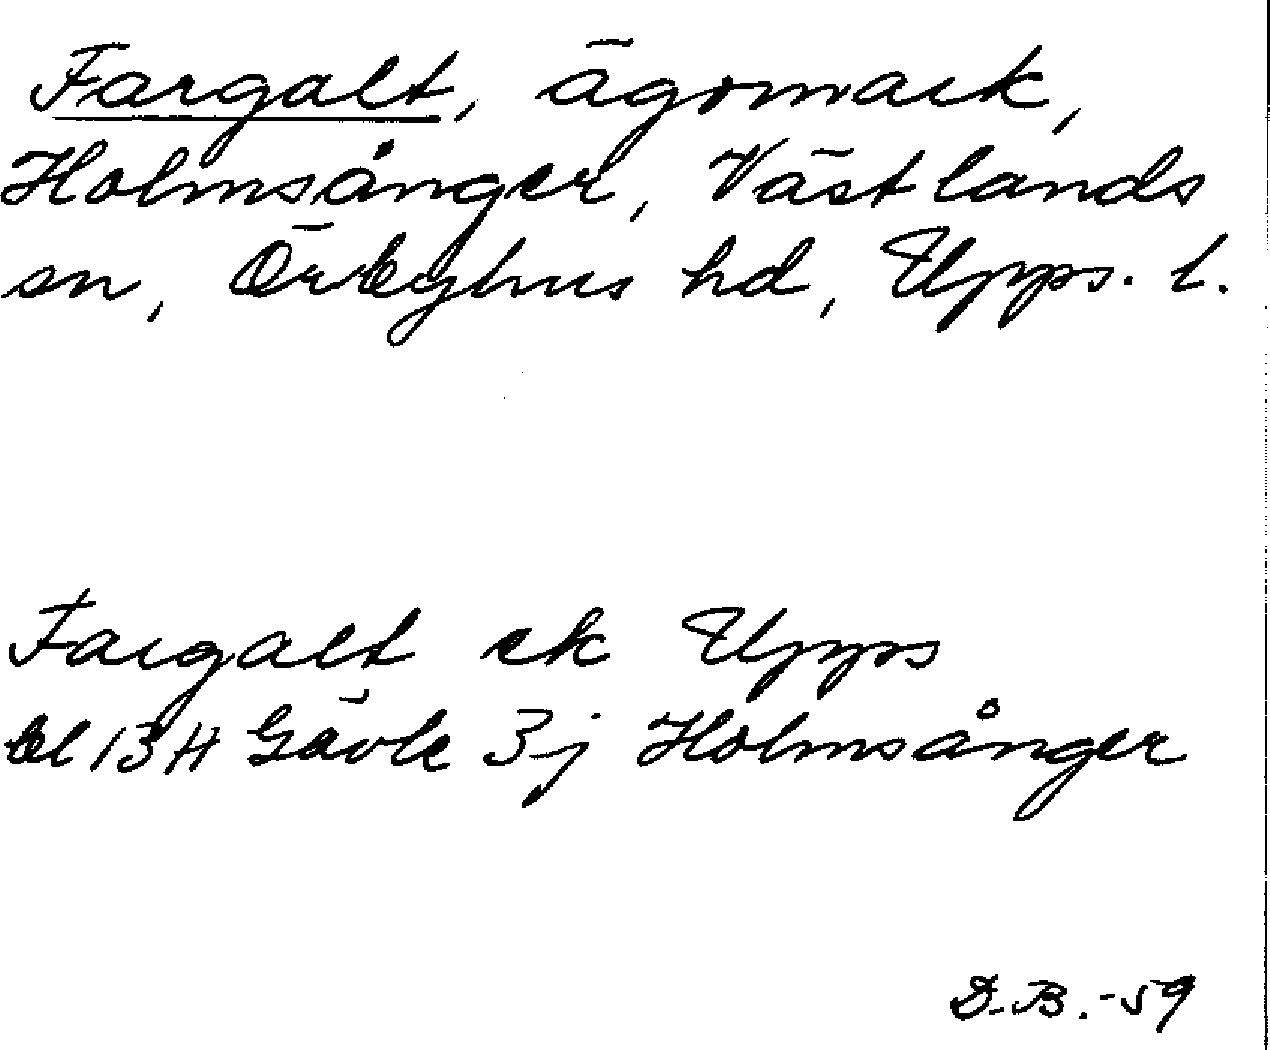 Fargalt, ägomark,
Holmsånger, Västlands
sn, Örbyhus hd, Upps. l.
Fargalt ek Upps
bl 13H Gävle 3j Holmsånger
D.B.-59